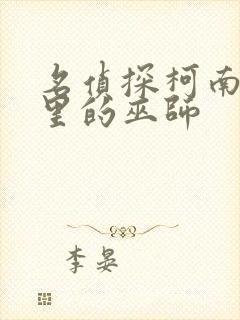 名偵探柯南
里的巫師
李晏